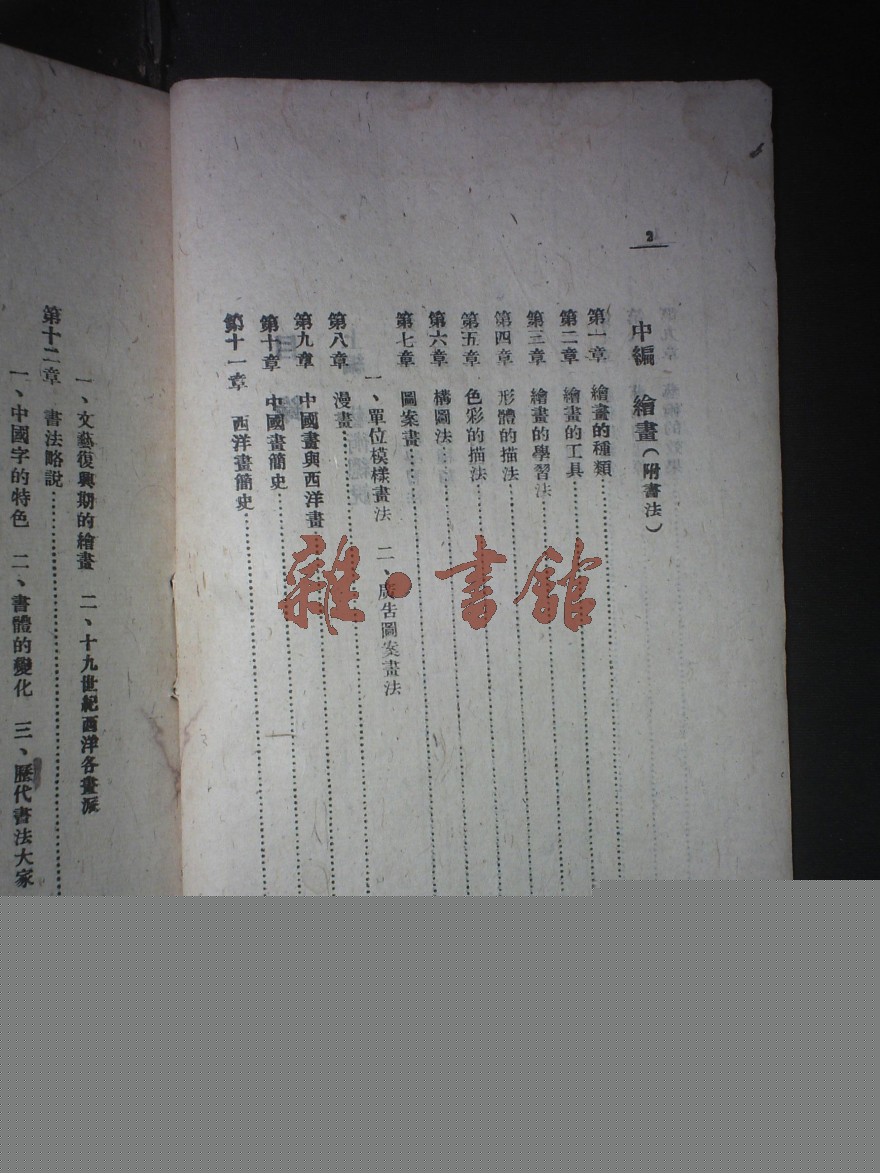 2
中編 繪畫(附書法)
第一章 繪畫的種類
第二章 繪畫的工具
第三章 繪畫的學習法
第四章 形體的描法
第五章 色彩的描法
第六章 構圖法
第七章 圖案畫
一、單位模樣畫法 二、廣告圖案畫法
第八章 漫畫
第九章 中國畫與西洋畫
第十章 中國畫簡史
第十一章 西洋畫簡史
一、文藝復興期的繪畫 二、十九世紀西洋各畫派
第十二章 書法略説
一、中國字的特色 二、書體的變化 三、歷代書法大家
雜·書館